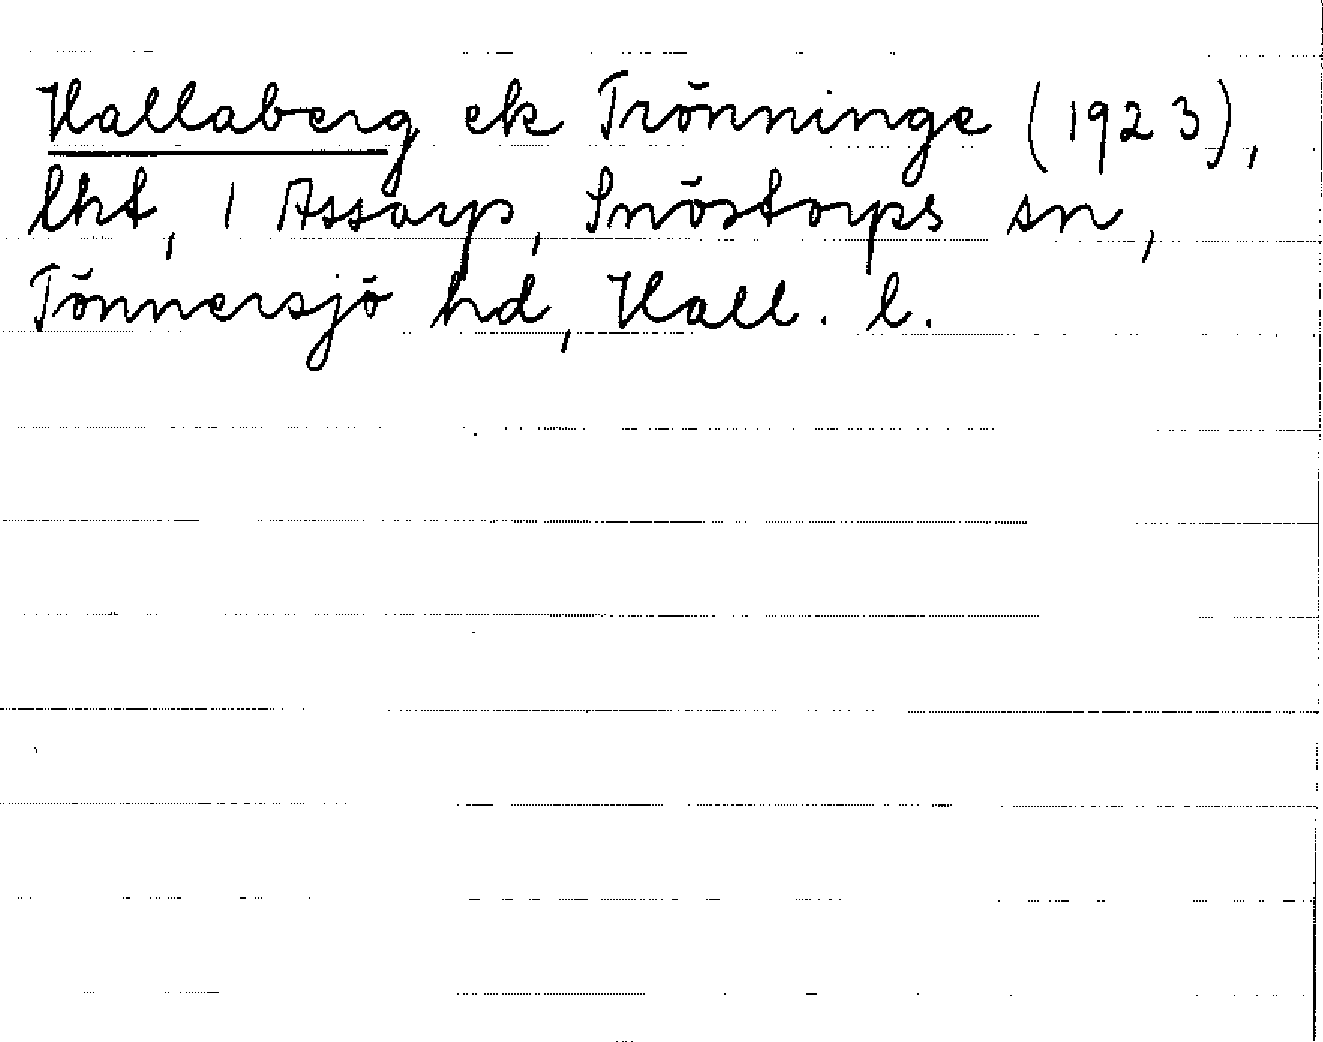 Hallaberg ek Trönninge (1923),
lht, 1 Assarp, Snöstorps sn,
Tönnersjö hd, Hall. l.